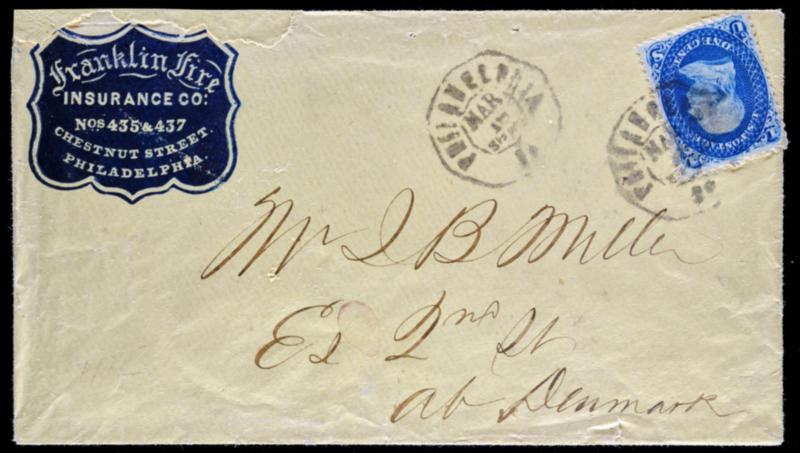 Franklin Fire
INSURANCE CO:
NOS 435 & 437
CHESTNUT STREET.
PHILADELPHIA
PHILADELPHIA
MAR
17
PHILADELPHIA
MA
U.S. POSTAGE
ONE CENT
Mr J B Miller
Es 2nd St
ab Denmark